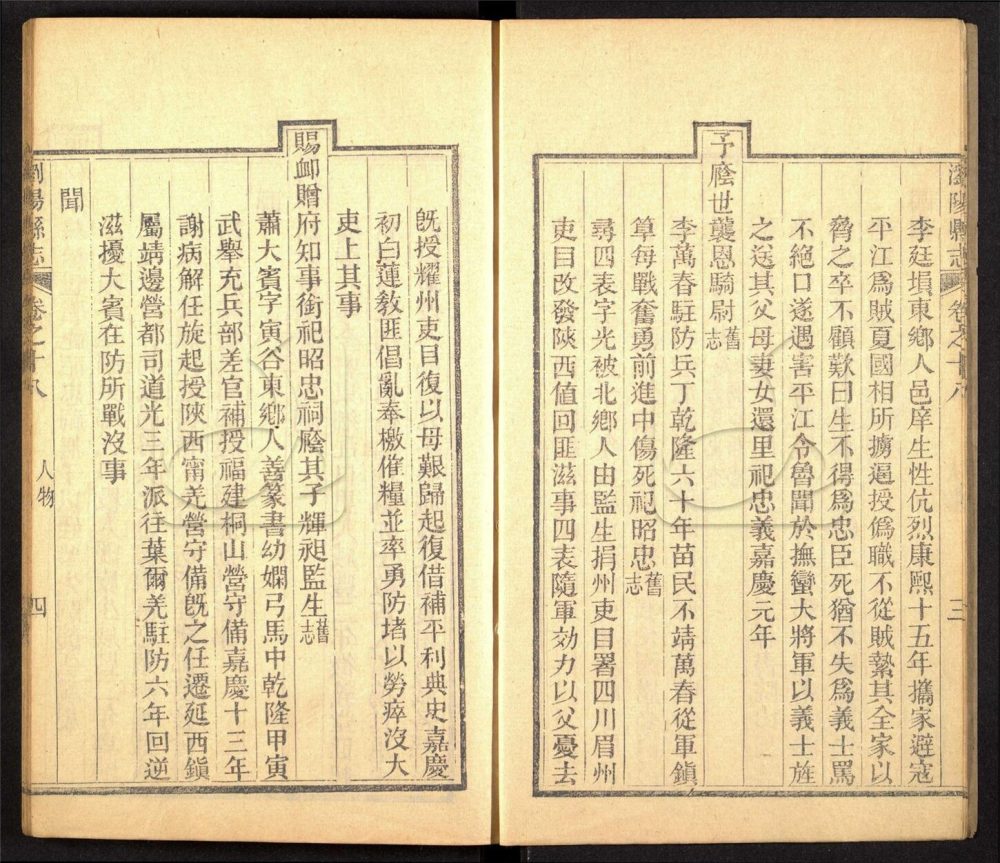 瀏陽縣志 卷之十八 三
李廷塤東鄉人邑庠生性伉烈康熙十五年攜家避寇
平江爲賊夏國相所擄逼授僞職不從賊縶其全家以
脅之卒不顧歎曰生不得爲忠臣死猶不失爲義士罵
不絕口遂遇害平江令魯聞於撫蠻大將軍以義士旌
之送其父母妻女還里祀忠義嘉慶元年
予廕世襲恩騎尉舊志
李萬春駐防兵丁乾隆六十年苗民不靖萬春從軍鎮
筸每戰奮勇前進中傷死祀昭忠舊志
尋四表字光被北鄉人由監生捐州吏目署四川眉州
吏目改發陝西值回匪滋事四表隨軍効力以父憂去
既授耀州吏目復以母艱歸起復借補平利典史嘉慶
初白蓮敎匪倡亂奉檄催糧並率勇防堵以勞瘁沒大
吏上其事
賜卹贈府知事銜祀昭忠祠廕其子輝昶監生舊志
蕭大賓字寅谷東鄉人善篆書幼嫻弓馬中乾隆甲寅
武舉充兵部差官補授福建桐山營守備嘉慶十三年
謝病解任旋起授陝西甯羌營守備旣之任遷延西鎮
屬靖邊營都司道光三年派往葉爾羌駐防六年回逆
滋擾大賓在防所戰沒事
聞
瀏陽縣志 卷之十八 人物 四